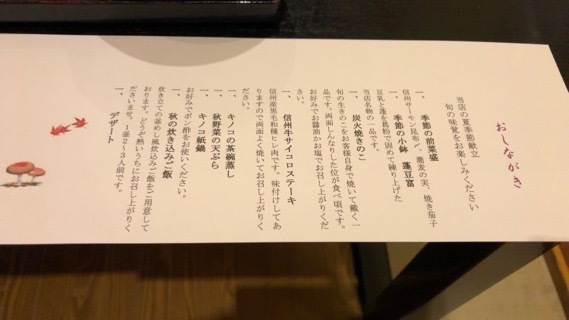 おしながき
当店の夏季節献立
旬の味覚をお楽しみください
一、季節の前菜盛
信州サーモン昆布〆、蕎麦の実、焼き茄子
一、季節の小鉢 蓬豆富
豆乳と蓬を葛粉で固めて練り上げた
当店名物の一品です。
一、炭火焼きのこ
旬の生きのこをお客様自身で焼いて戴く一
品です。両面しんなりした位が食べ頃です。
お好みでお醤油かお塩でお召し上がりくだ
さい。
一、信州牛サイコロステーキ
信州産黒毛和種ヒレ肉です。味付けしてあ
りますので両面よく焼いてお召し上がりく
ださい。
一、キノコの茶碗蒸し
一、秋野菜の天ぷら
一、キノコ紙鍋
お好みでポン酢をお使いください。
一、秋の炊き込みご飯
炊き立ての釜めし風炊込みご飯をご用意して
おります。どうぞ熱いうちにお召し上がりく
ださいませ。1釜2~3人前です。
一、デザート